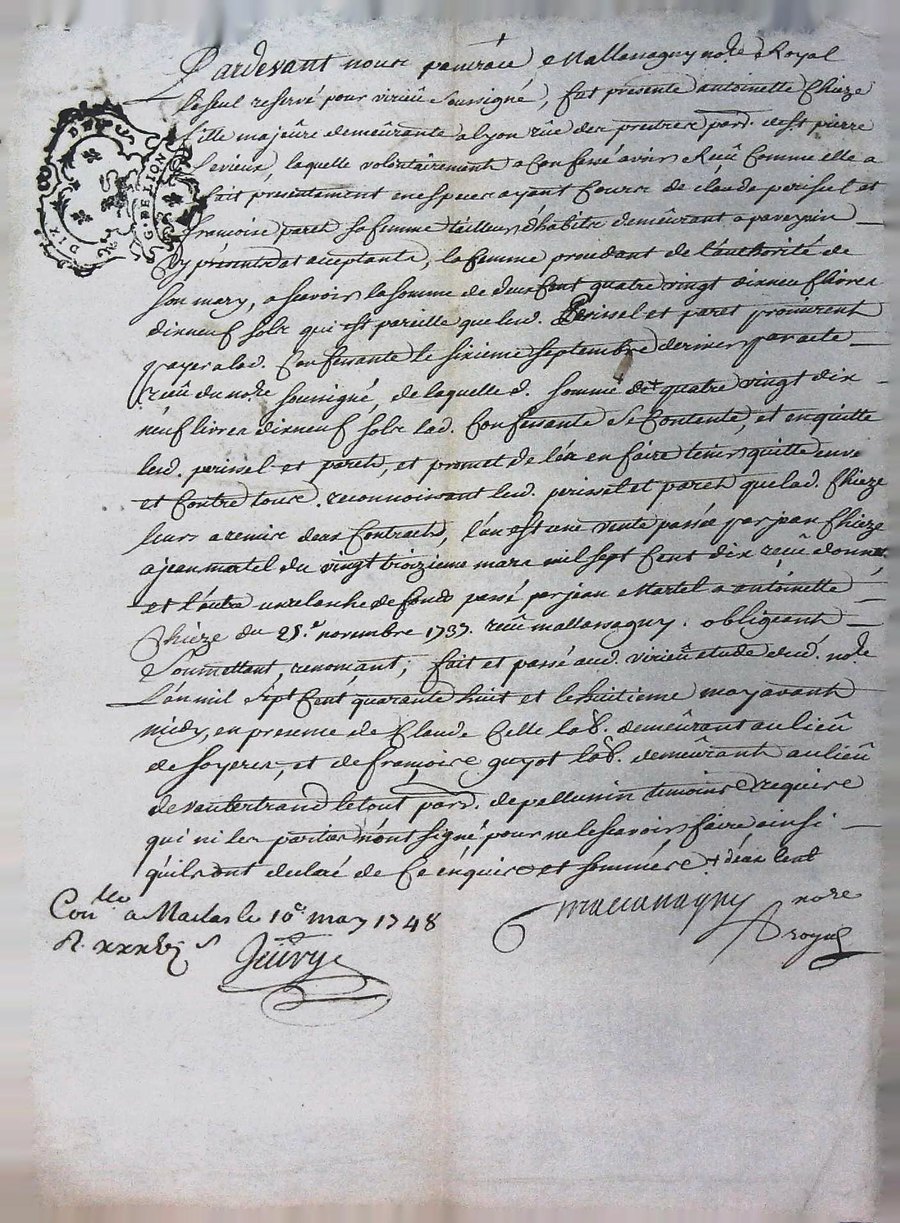 Pardevant nous pancrace Mallanaguy nore Royal
le seul reservé pour virieu soussigné, fut presente antoinette Chieze
fille majeure demeurante a lyon rue des prestres par. de st pierre
levieux, laquelle volontairement a Confessé avoir Reçu Comme elle a
fait presentement en especes ayant Cours de claude perissel et
francoise paret sa femme tailleur d'habits demeurant a pavezin
Cy presents et aceptants, la femme procedant de l'authorité de
son mary, a scavoir la somme de deux Cent quatre vingt dixneuf livres
dixneuf sols qui est pareille que lesd. Perissel et paret promirent
payer a lad. Confessante le sixieme septembre dernier par acte
reçu du nore soussigné, de laquelle d. somme de + quatre vingt dix
neuf livres dixneuf sols lad. Confessante se Contente, et en quitte
lesd. perissel et paret, et promet de les en faire tenir quitte envers
et Contre tous. reconnoissant lesd. perissel et paret que lad. Chieze
leurs a remis deux Contracts, l'un est une vente passée par jean Chieze
a jean martel du vingt troizieme mars mil sept Cent dix reçu donnet
et l'autre un relache de fonds passé par jean Martel a antoinette
Chieze du 25.e novembre 1737. reçu mallanaguy. obligeant
soumettant, renoncant; fait et passé aud. virieu etude dud. nore
L'an mil sept Cent quarante huit et le huitieme may avant
midy, en presence de Claude Celle lab. demeurant au lieu
de soyeres, et de françois guyot lab. demeurant au lieu
de vaubertrand le tout par. de pellussin temoins requis
qui ni les parties n'ont signé pour ne le scavoir faire ainsi
qu'ils ont declaré de Ce enquis et sommés + deux Cent
mallanaguy nore
royal
Conllé a Maclas le 10e may 1748
R. xxx s
G. DE LION
DIX
DE